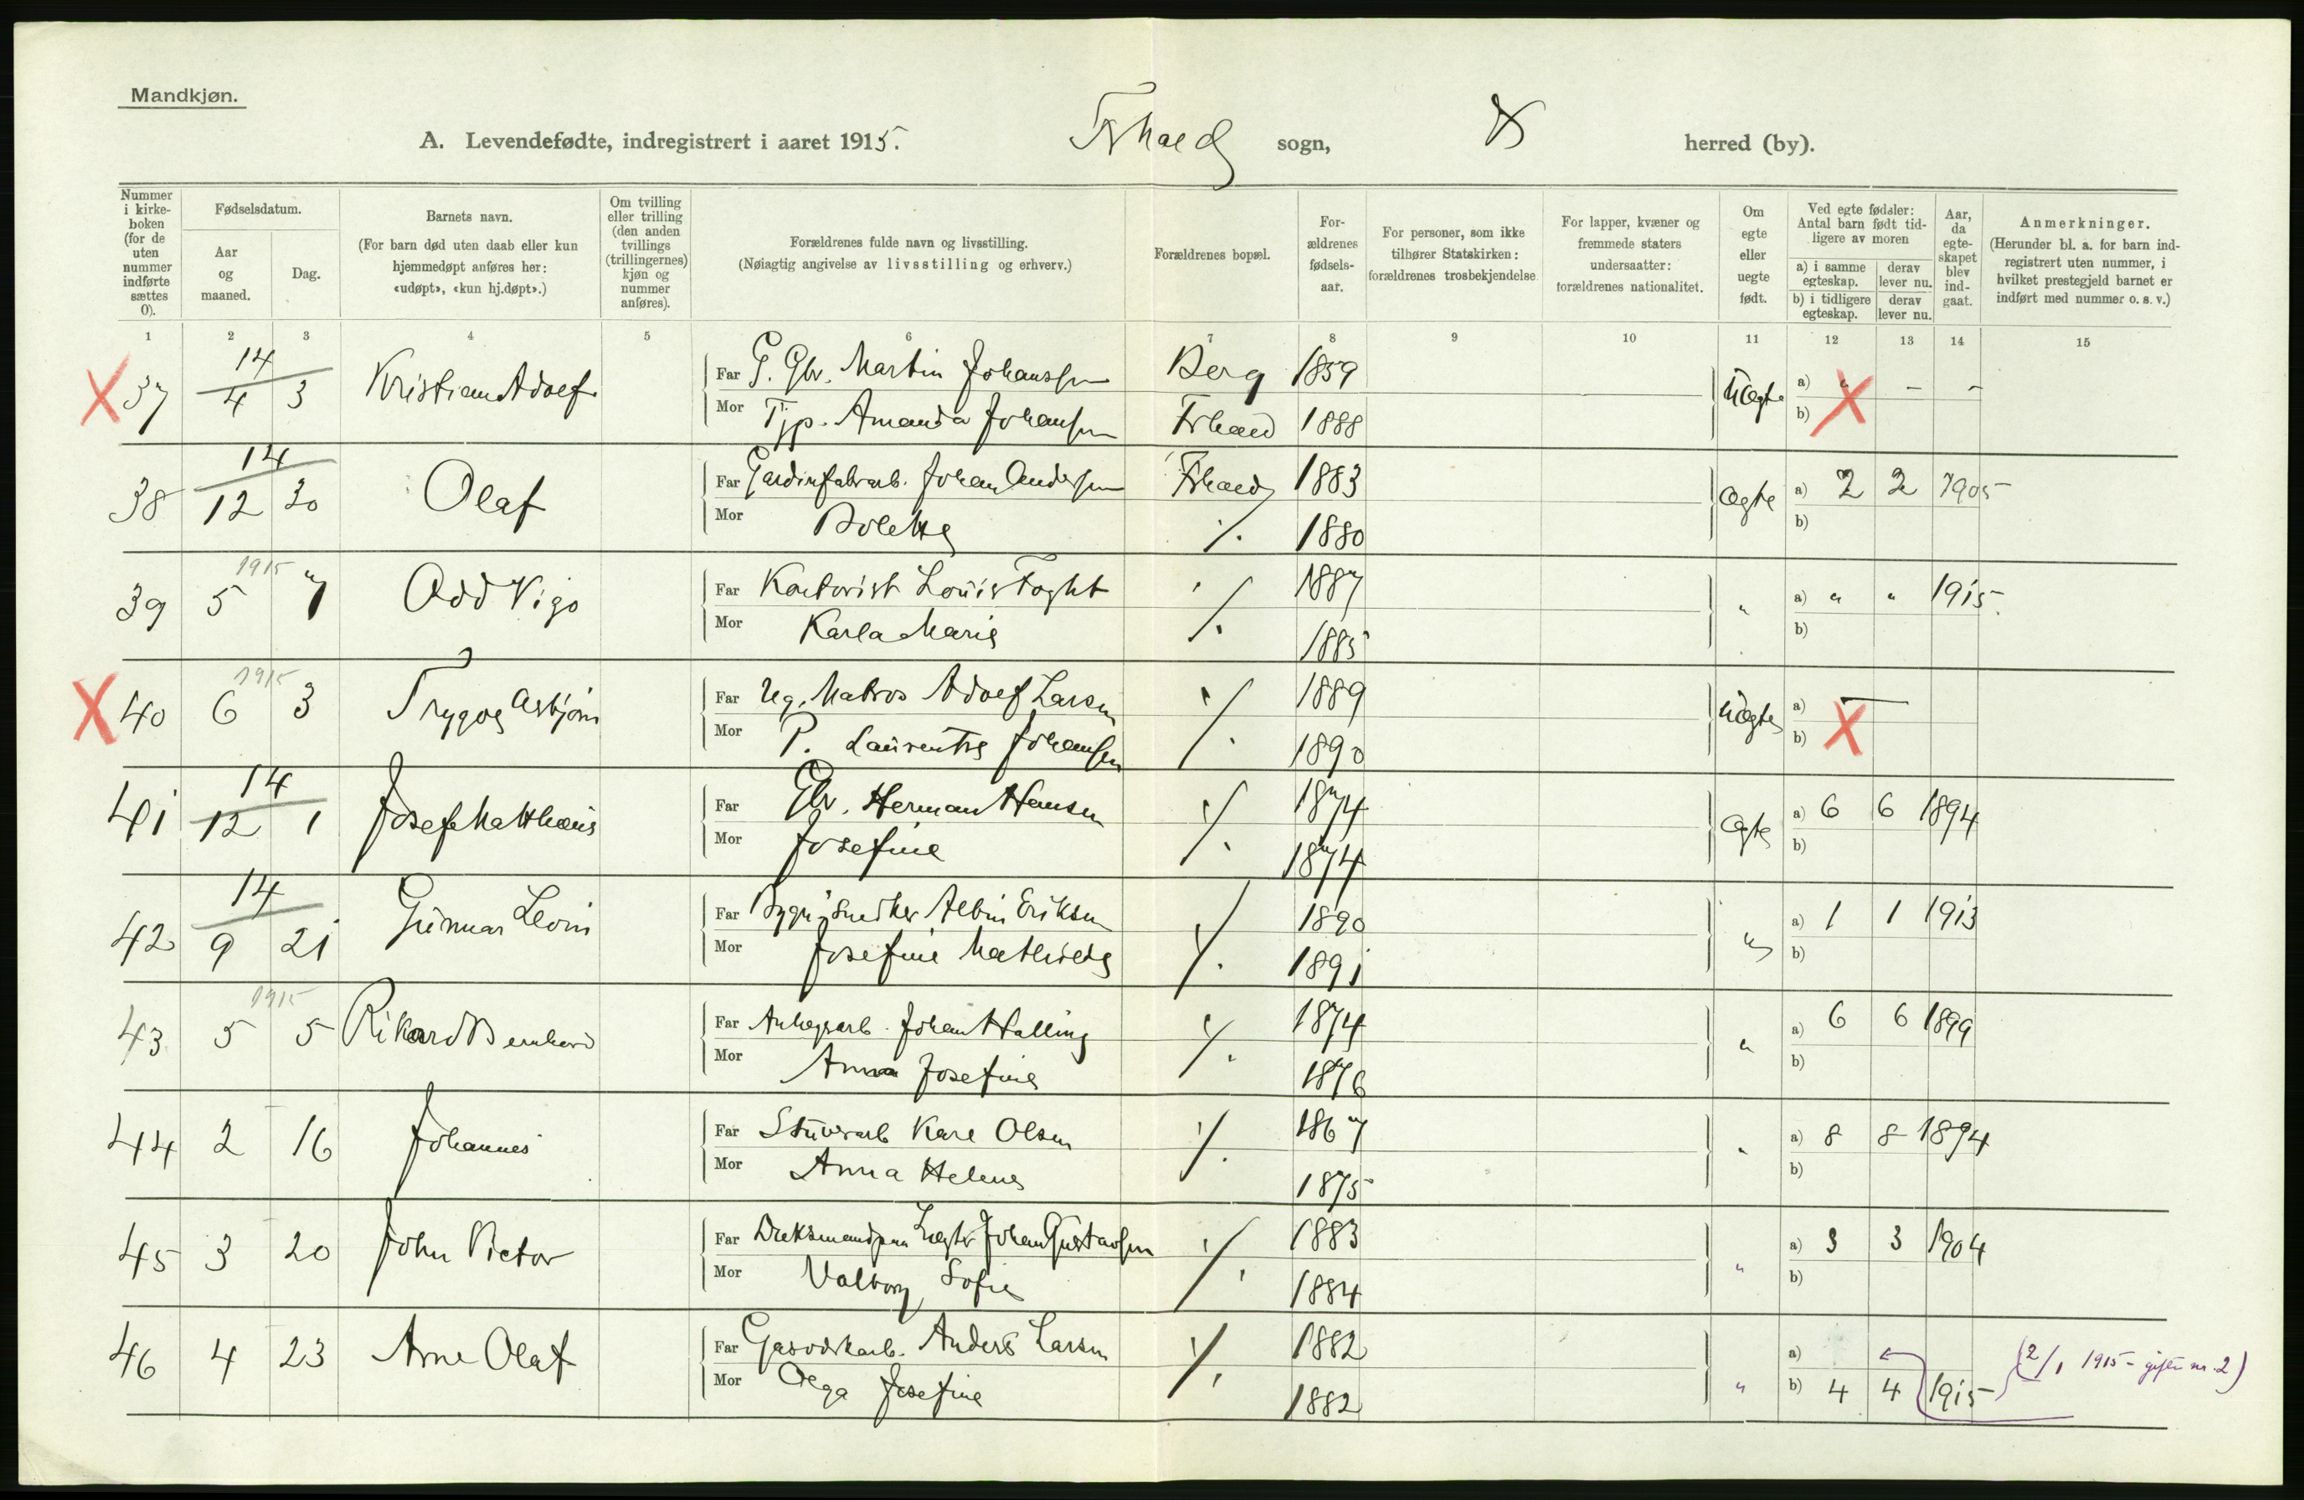 Mandkjøn.
A. Levendefødte, indregistrert i aaret 1915. Frhald sogn, herred (by).
Nummer i kirke- boken (for de uten nummer indførte sættes 0).
Fødselsdatum.
Aar og maaned.
Dag.
Barnets navn.
(For barn død uten daab eller kun hjemmedøpt anføres her: «udøpt», «kun hj.døpt».)
Om tvilling eller trilling (den anden tvillings (trillingernes) kjøn og nummer anføres).
Forældrenes fulde navn og livsstilling.
(Nøiagtig angivelse av livsstilling og erhverv.)
Forældrenes bopæl.
For- ældrenes fødsels- aar.
For personer, som ikke tilhører Statskirken: forældrenes trosbekjendelse
For lapper, kvæner og fremmede staters undersaatter: forældrenes nationalitet.
Om egte eller uegte født.
Ved egte fødsler: Antal barn født tid- ligere av moren
a) i samme egteskap.
derav lever nu.
b) i tidligere egteskap.
derav lever nu.
Aar, da egte- skapet blev ind- gaat.
Anmerkninger.
(Herunder bl. a. for barn ind- registrert uten nummer, i hvilket prestegjeld barnet er indført med nummer o. s. v.)
1 2 3 4 5 6 7 8 9 10 11 12 13 14 15
X 37 14/4 3 Kristian Adolf Far G. Gbr. Martin Johanssen Berg 1859 Uægte a) " X - -
Mor Tjp. Amanda Johansen Frhald 1888 b)
38 14/12 30 Olaf Far Gardinfabrarb. Johan Andersen Frhald 1883 Ægte a) 2 2 1905
Mor Bolette ·/. 1880 b)
39 1915 5 7 Odd Vigo Far Kontorist Louis Foght ·/. 1887 " a) " " 1915.
Mor Karla Marie 1885 b)
X 40 1915 6 3 Trygve Asbjørn Far Ug. Matros Adolf Larsen ·/. 1889 Uægte a) —
Mor P. Laurentze Johansen 1890 b) X
41 14/12 1 Josef Matthæus Far Gbr. Herman Hansen ·/. 1874 Ægte a) 6 6 1894
Mor Josefine 1874 b)
42 14/9 21 Gunnar Levin Far Bygn. Snedker Albin Eriksen ·/. 1890 " a) 1 1 1913
Mor Josefine Mathilde 1891 b)
43 1915 5 5 Rikard Bernhard Far Anlegsarb. Johan Halling ·/. 1874 " a) 6 6 1899
Mor Anna Josefine 1876 b)
44 2 16 Johannes Far Stuverarb Karl Olsen ·/. 1867 " a) 8 8 1894
Mor Anna Helene 1875 b)
45 3 20 John Victor Far Dæksmand paa Johan Gustavsen ·/. 1883 " a) 3 3 1904
Mor Valborg Sofie 1884 b)
46 4 23 Arne Olaf Far Gasverkarb. Anders Larsen ·/. 1882 " a) (2/1 1915 - gift nr. 2)
Mor Olga Josefine 1882 b) 4 4 1915